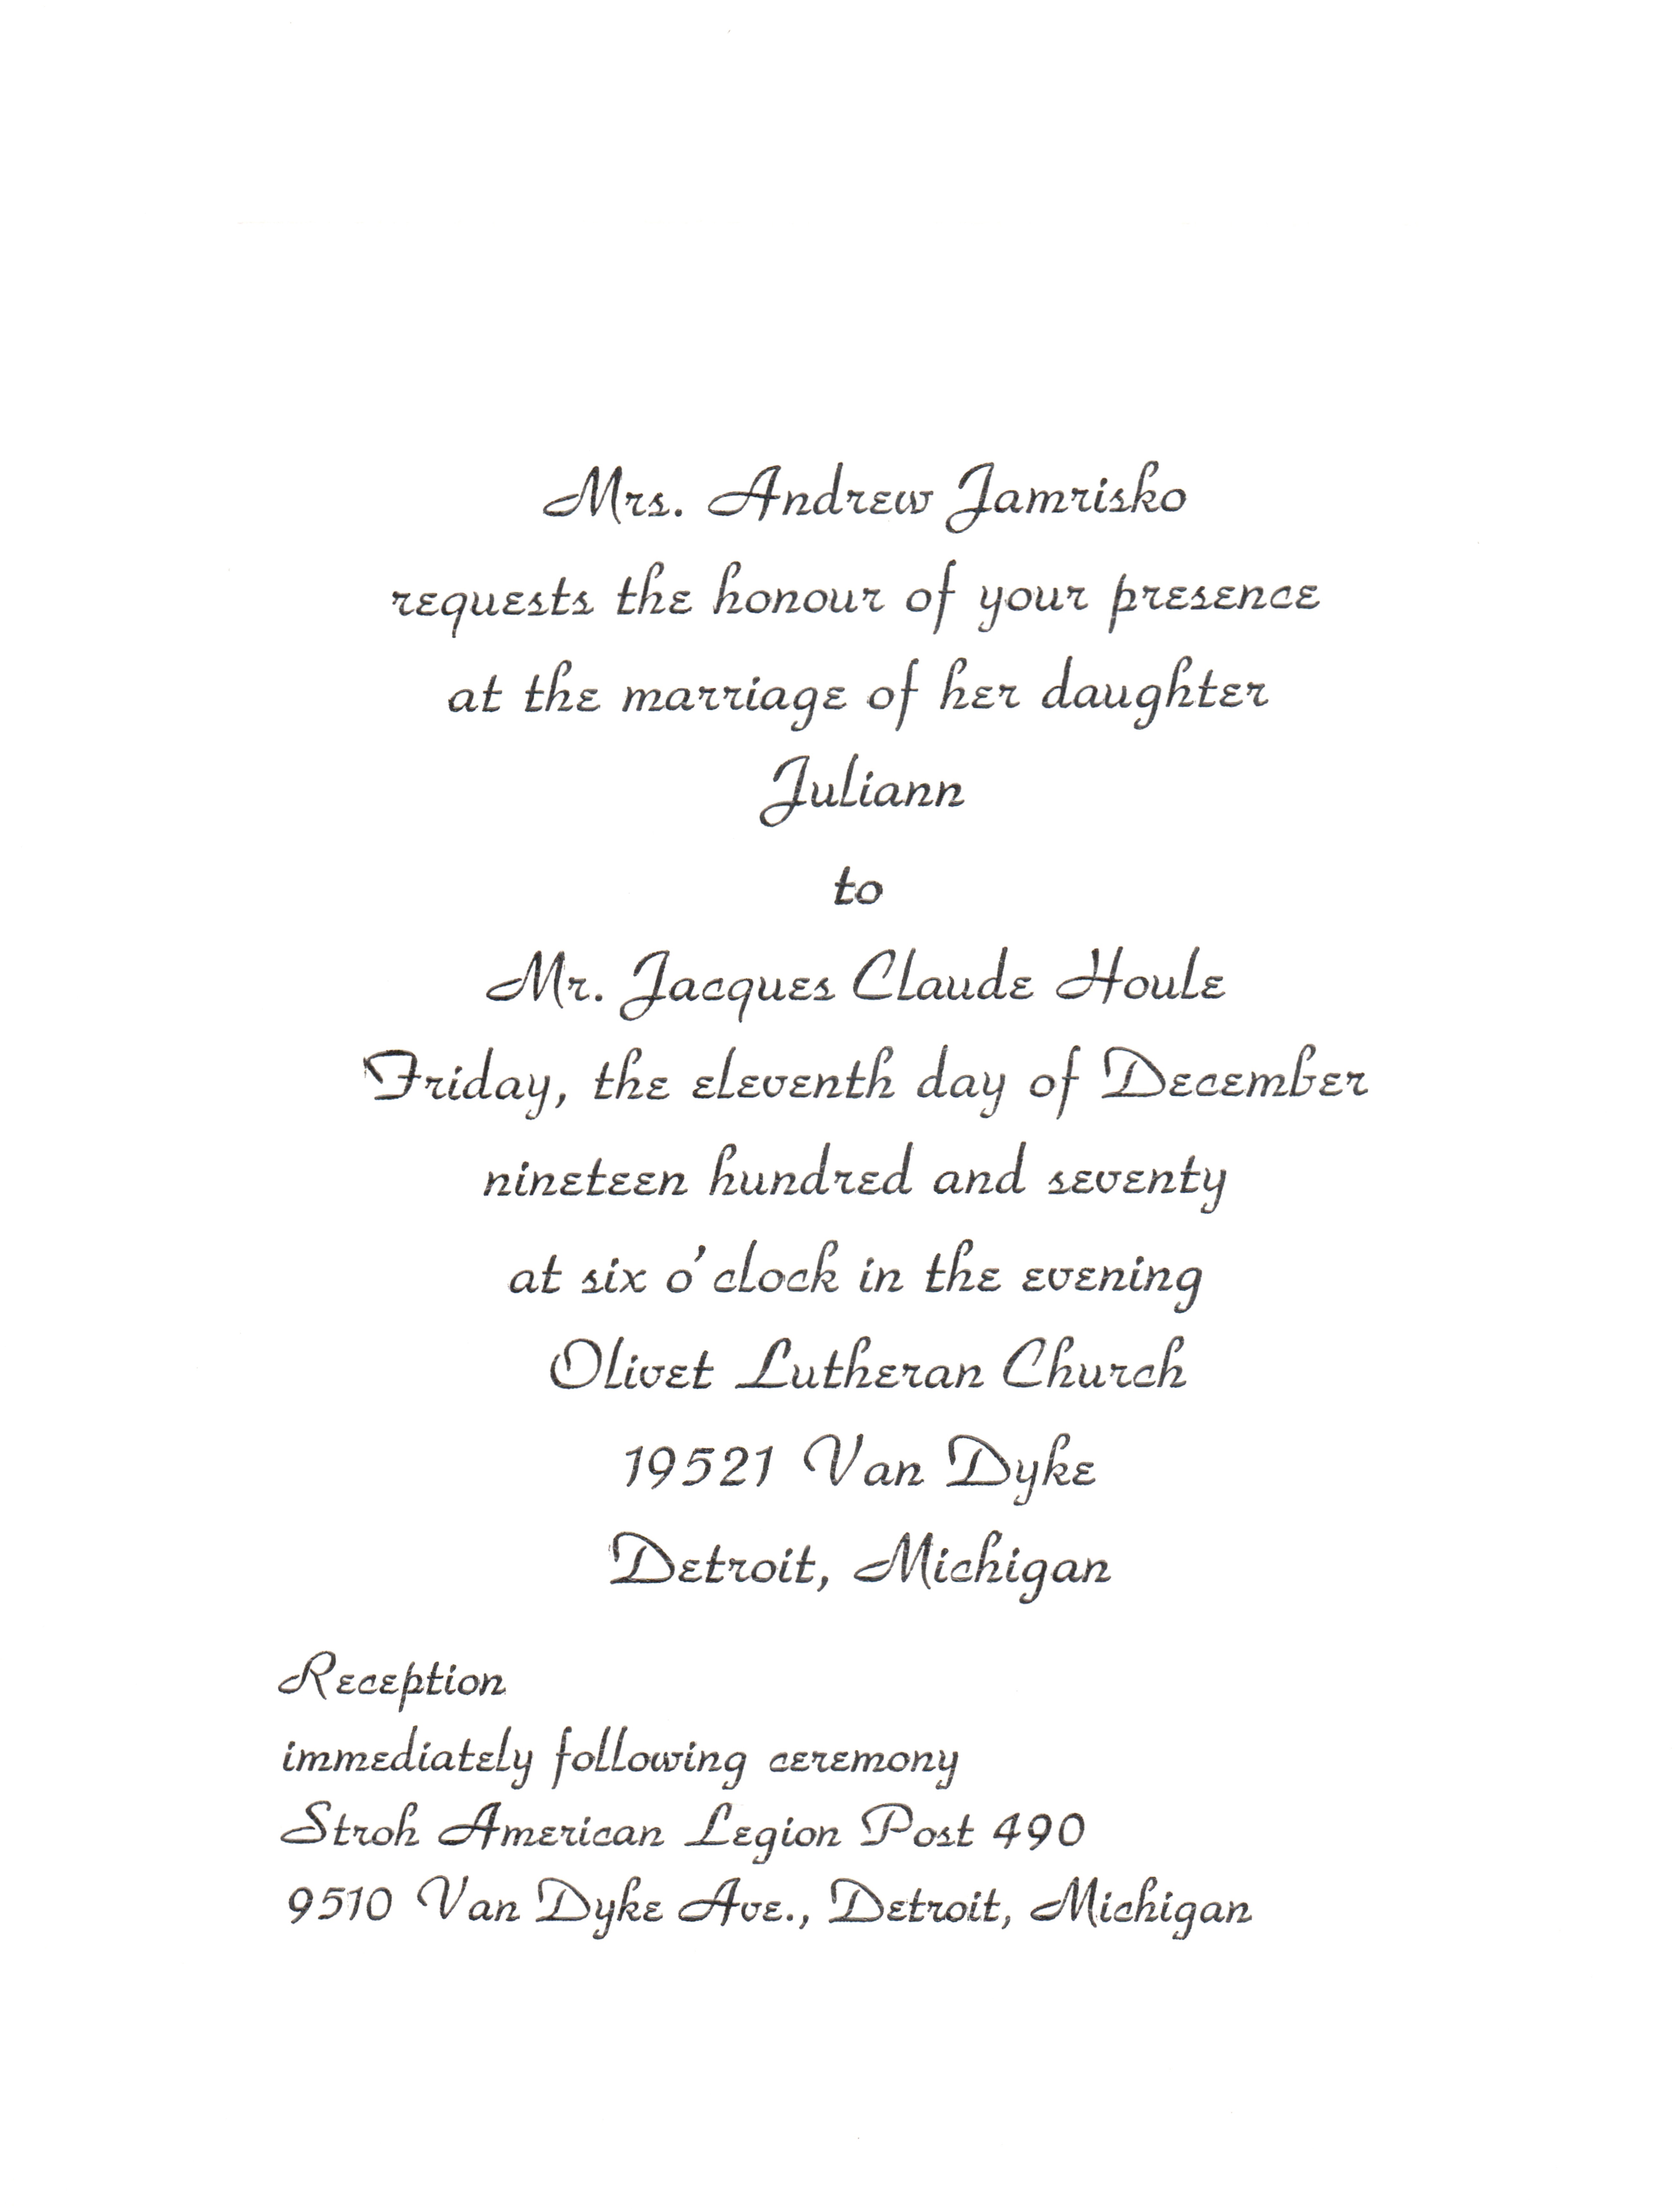 Mrs. Andrew Jamrisko
requests the honour of your presence
at the marriage of her daughter
Juliann
to
Mr. Jacques Claude Houle
Friday, the eleventh day of December
nineteen hundred and seventy
at six o'clock in the evening
Olivet Lutheran Church
19521 Van Dyke
Detroit, Michigan
Reception
immediately following ceremony
Stroh American Legion Post 490
9510 Van Dyke Ave., Detroit, Michigan